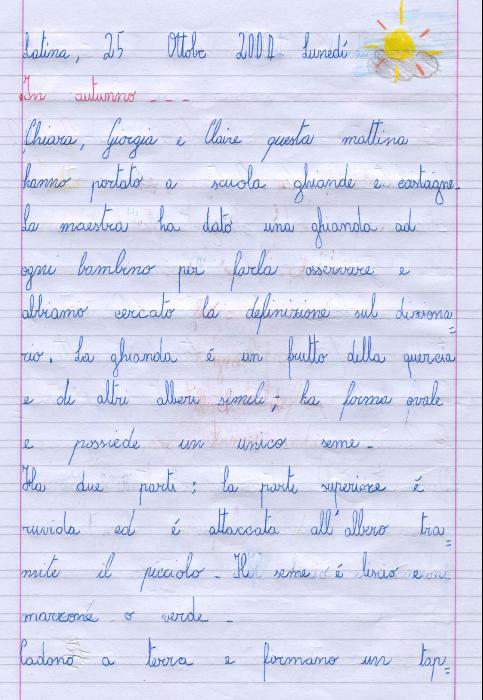 Latina, 25 Ottobr 2004 Lunedí
In autunno - - -
Chiara, Giorgia e Claire questa mattina
hanno portato a scuola ghiande e castagne.
La maestra ha dato una ghianda ad
ogni bambino per farla osservare e
abbiamo cercato la definizione sul diziona=
rio. La ghianda é un frutto della quercia
e di altri alberi simili; ha forma ovale
e possiede un unico seme.
Ha due parti: la parte superiore é
ruvida ed é attaccata all'albero tra=
mite il picciolo. Il seme é liscio e
marrone o verde.
Cadono a terra e formano un tap=